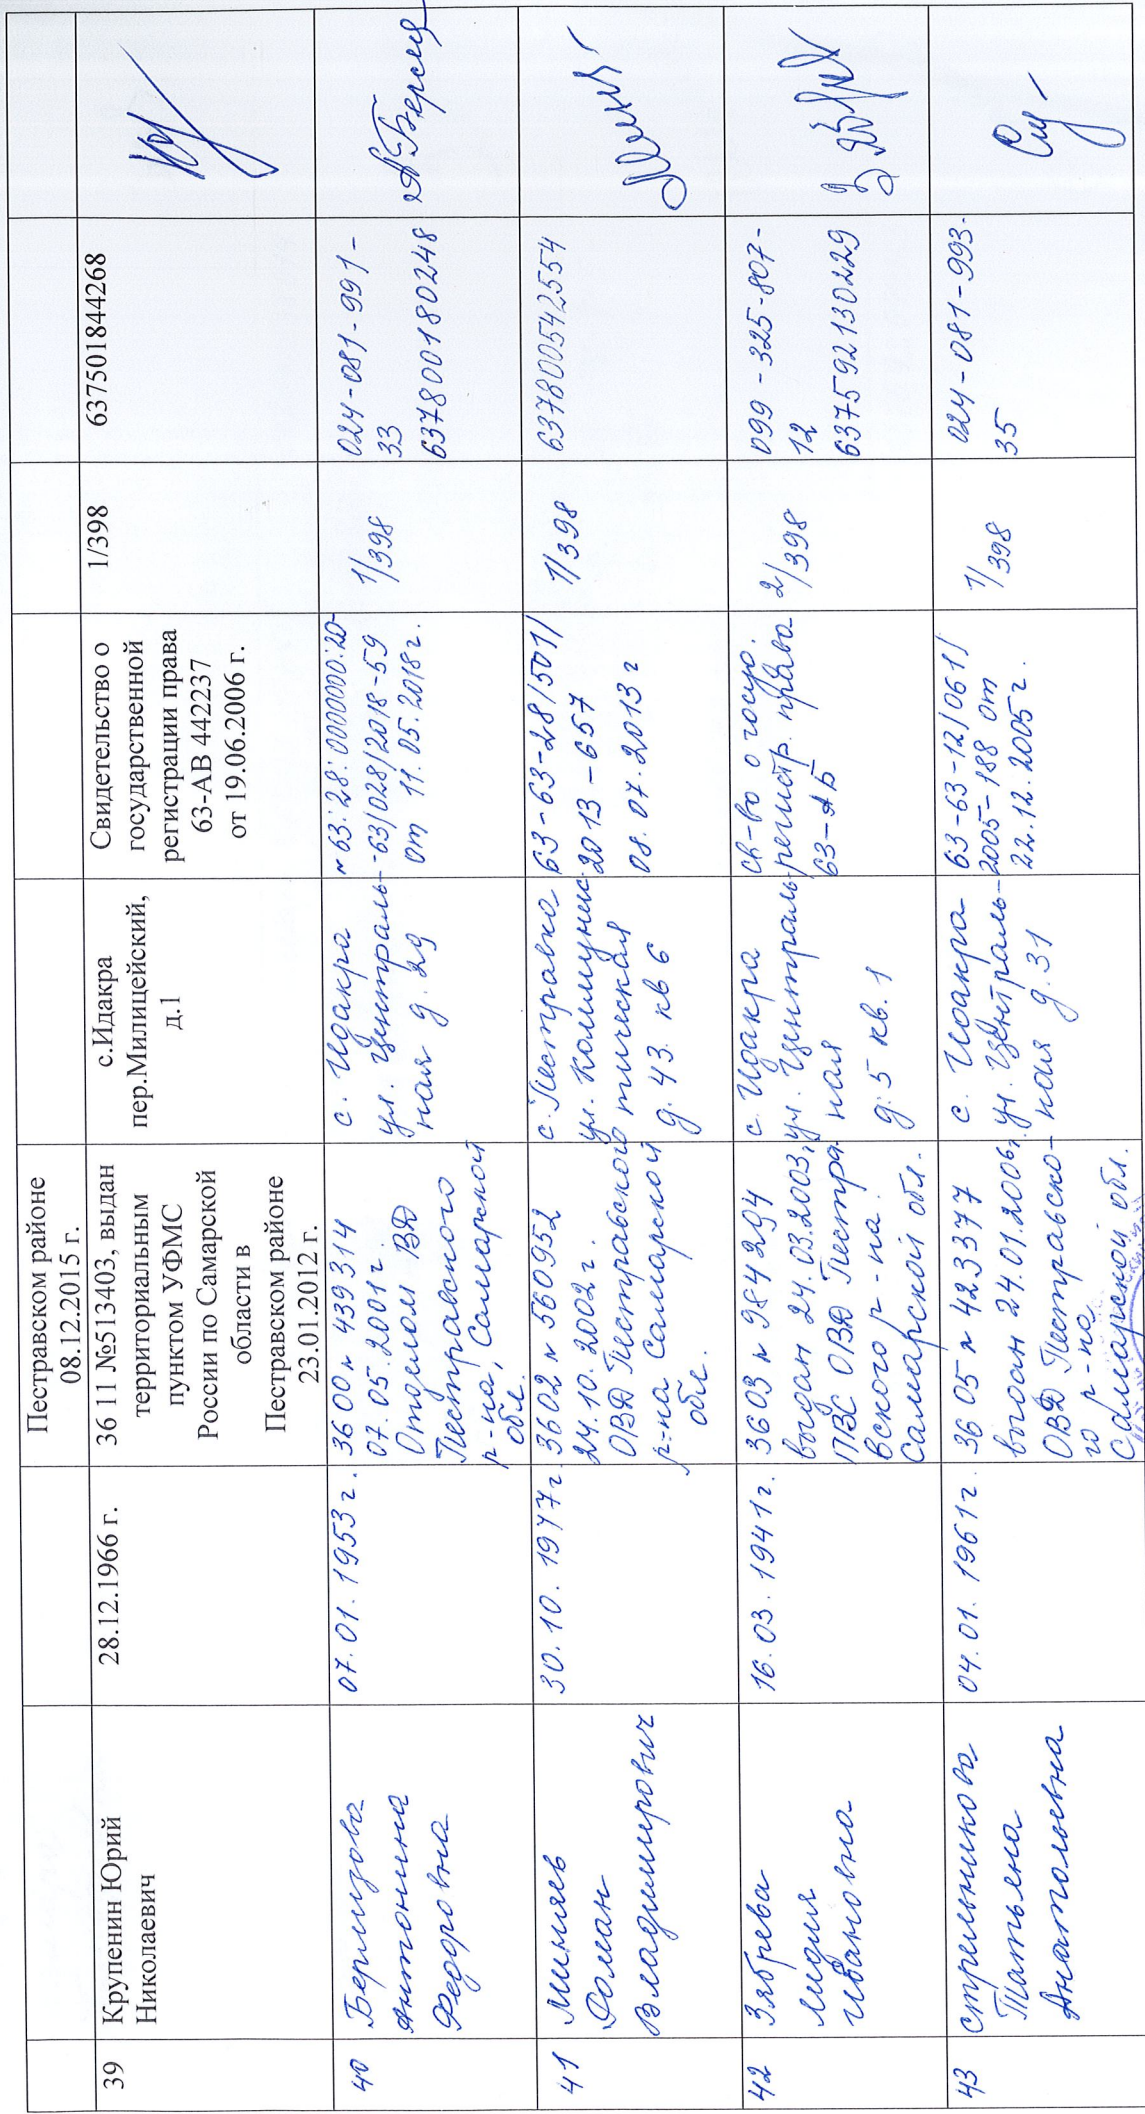 Пестравском районе
08.12.2015 г.
39
Крупенин Юрий
Николаевич
28.12.1966 г.
36 11 №513403, выдан
территориальным
пунктом УФМС
России по Самарской
области в
Пестравском районе
23.01.2012 г.
с.Идакра
пер.Милицейский,
д.1
Свидетельство о
государственной
регистрации права
63-АВ 442237
от 19.06.2006 г.
1/398
637501844268
40
Бермизова
Антонина
Федоровна
07.01.1953 г.
36 00 № 439314
07.05.2001г.
Отделом ВД
Пестравского
р-на, Самарской
обл.
с. Идакра
ул. Централь-
ная д. 29
№ 63:28:0000000:20-
-63/028/2018-59
от 11.05.2018г.
1/398
024-081-991-
33
637800180248
41
Миняев
Роман
Владимирович
30.10.1977г.
3602 № 560952
24.10.2002 г.
ОВД Пестравского
р-на Самарской
обл.
с. Пестравка
ул. Коммунис-
тическая
д. 43. кв 6
63-63-28/501/
2013-657
08.07.2013 г
1/398
637800542554
42
Зябрева
Лидия
Ивановна
16.03.1941г.
3603 № 984294
выдан 24.03.2003г.
ПВС ОВД Пестра-
вского р-на.
Самарской обл.
с. Идакра
ул. Централь-
ная
д. 5 кв. 1
св-во о госуд.
регистр. права
63-АБ
2/398
099-325-807-
12
637592130229
43
Стрельникова
Татьяна
Анатольевна
04.01.1961г.
36 05 № 423377
выдан 24.01.2006г.
ОВД Пестравско-
го р-на
Самарской обл.
с. Идакра
ул. Централь-
ная д. 31
63-63-12/061/
2005-188 от
22.12.2005г.
1/398
024-081-993-
35